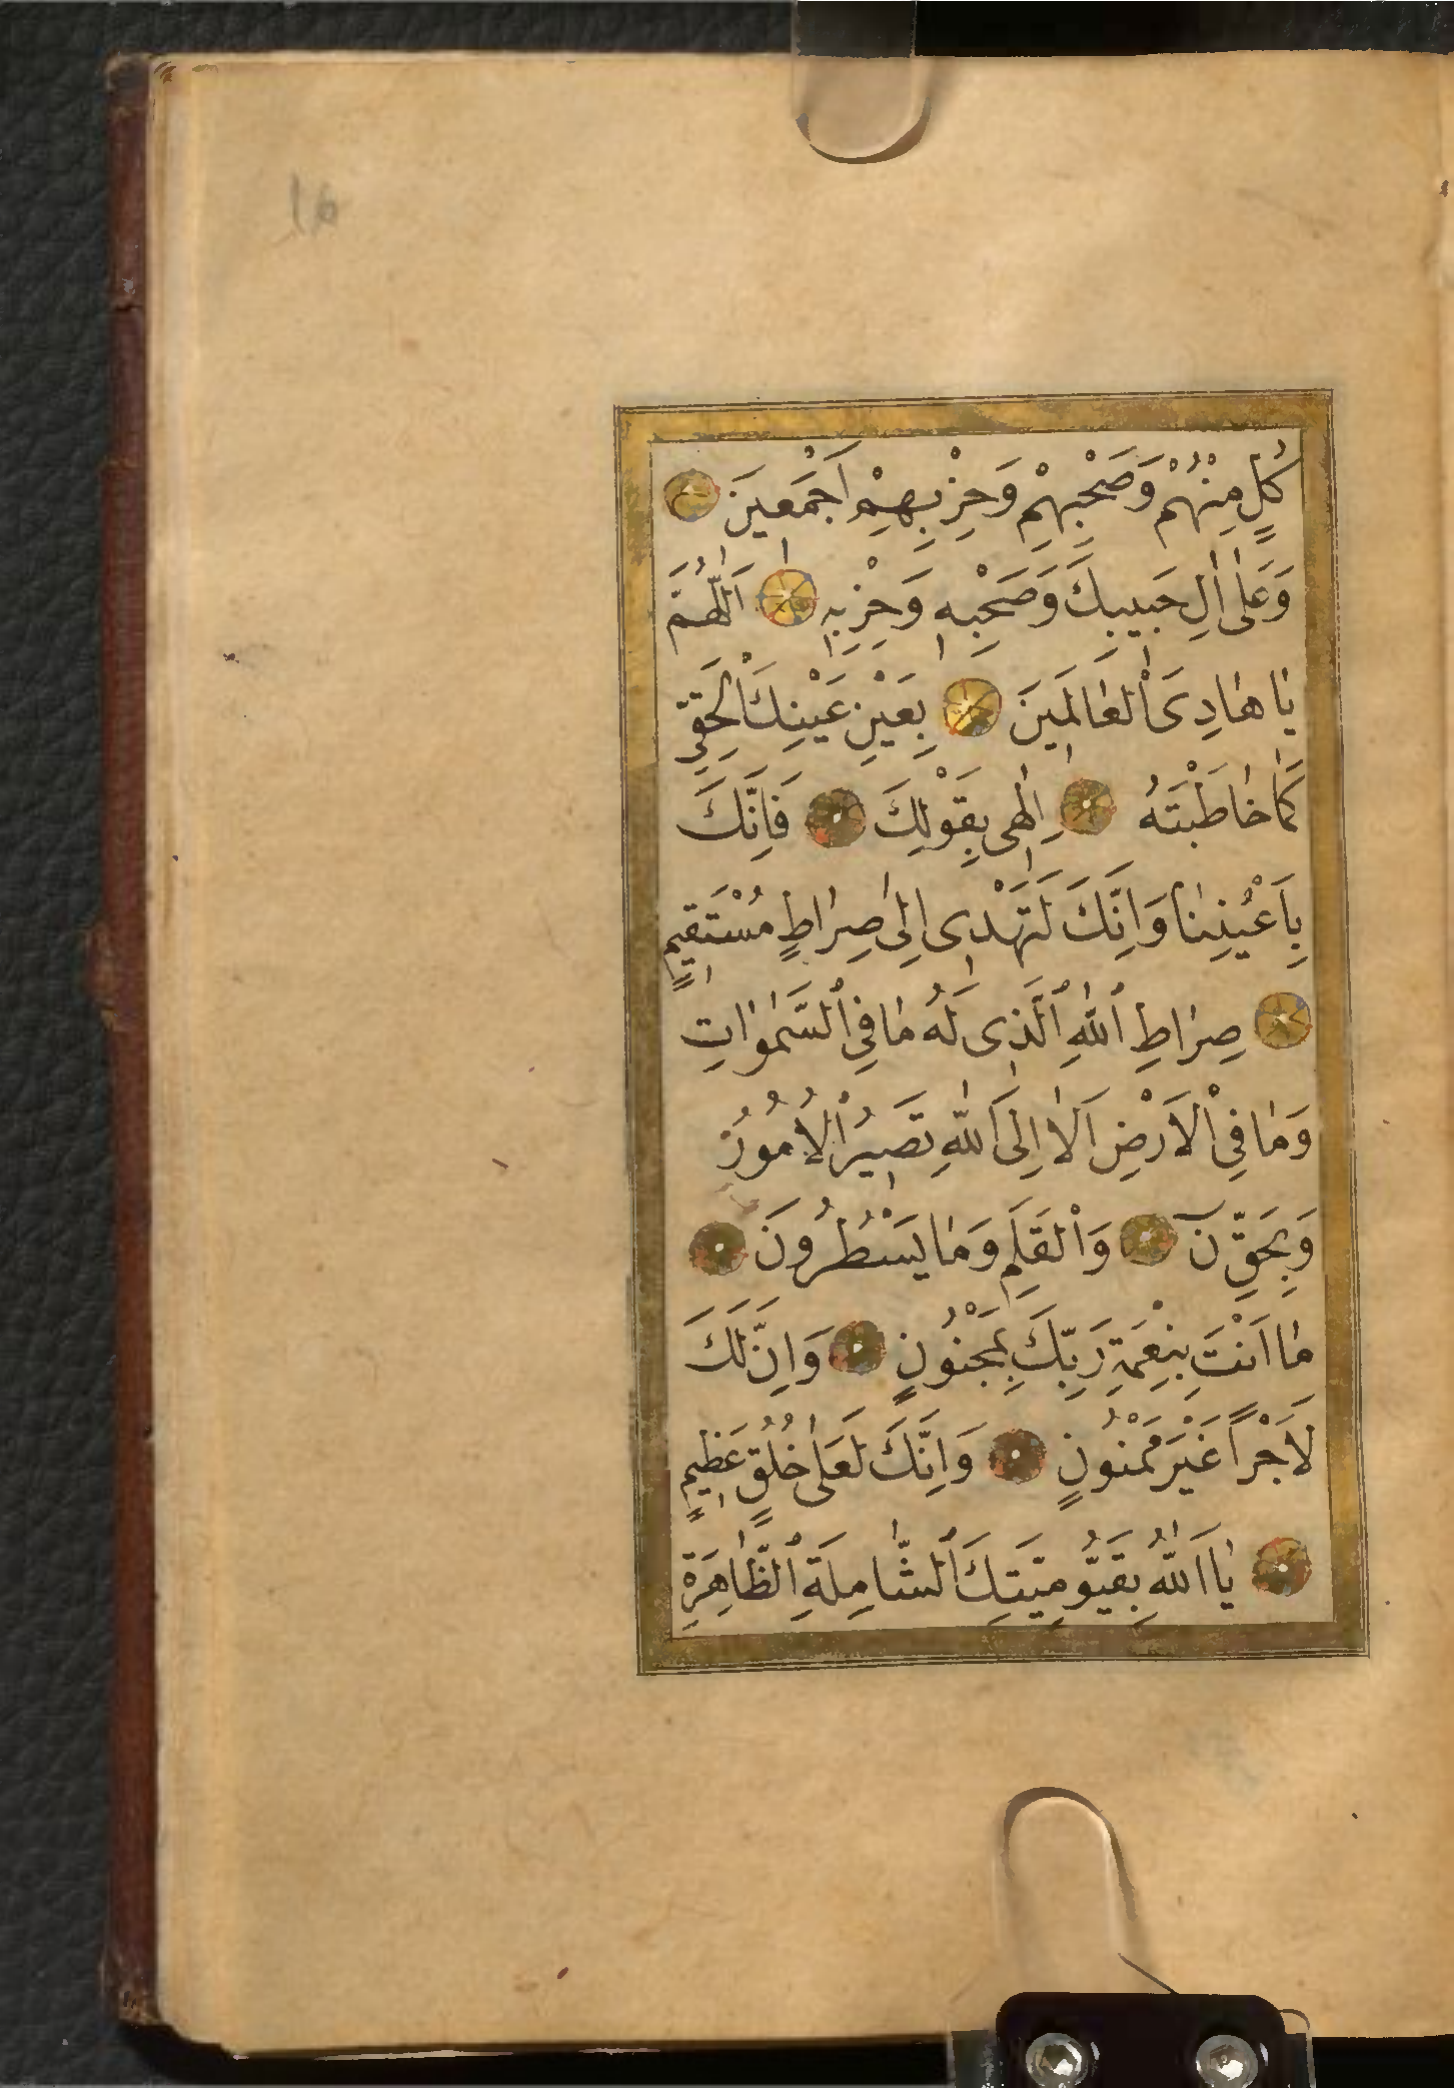 كُلٍّ مِنْهُمْ وَصَحْبِهِمْ وَحِزْبِهِمْ اَجْمَعِينَ
وَعَلٰى اٰلِ حَبِيبِكَ وَصَحْبِهِ وَحِزْبِهِ اَللّٰهُمَّ
يَا هَادِىَ ٱلْعَالَمِينَ بِعَيْنِ عَيْنِكَ ٱلْحَقِّ
كَمَا خَاطَبْتَهُ اِلٰهِى بِقَوْلِكَ فَاِنَّكَ
بِاَعْيُنِنَا وَاِنَّكَ لَتَهْدِى اِلٰى صِرَاطٍ مُسْتَقِيمٍ
صِرَاطِ ٱللّٰهِ ٱلَّذِى لَهُ مَا فِى ٱلسَّمٰوَاتِ
وَمَا فِى ٱلْاَرْضِ اَلَا اِلَى ٱللّٰهِ تَصِيرُ ٱلْاُمُورُ
وَبِحَقِّ نٓ وَٱلْقَلَمِ وَمَا يَسْطُرُونَ
مَا اَنْتَ بِنِعْمَةِ رَبِّكَ بِمَجْنُونٍ وَاِنَّ لَكَ
لَاَجْرًا غَيْرَ مَمْنُونٍ وَاِنَّكَ لَعَلٰى خُلُقٍ عَظِيمٍ
يَا اَللّٰهُ بِقَيُّومِيَّتِكَ ٱلشَّامِلَةِ ٱلظَّاهِرَةِ